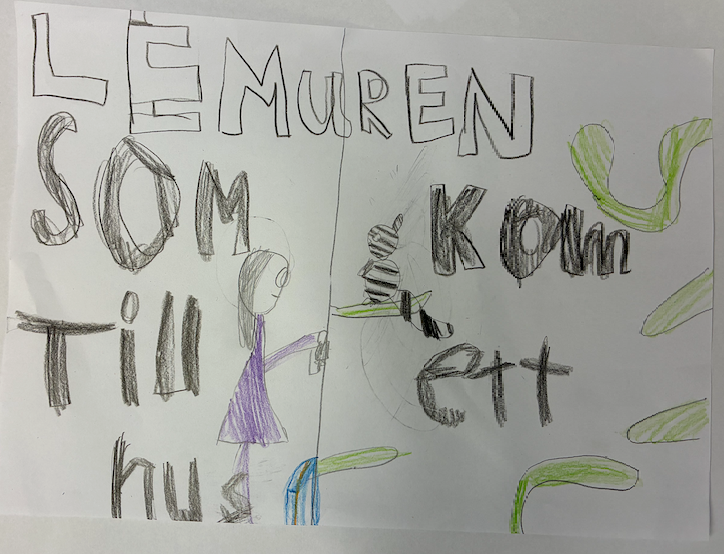 LEMUREN
SOM KOM
Till ett
hus